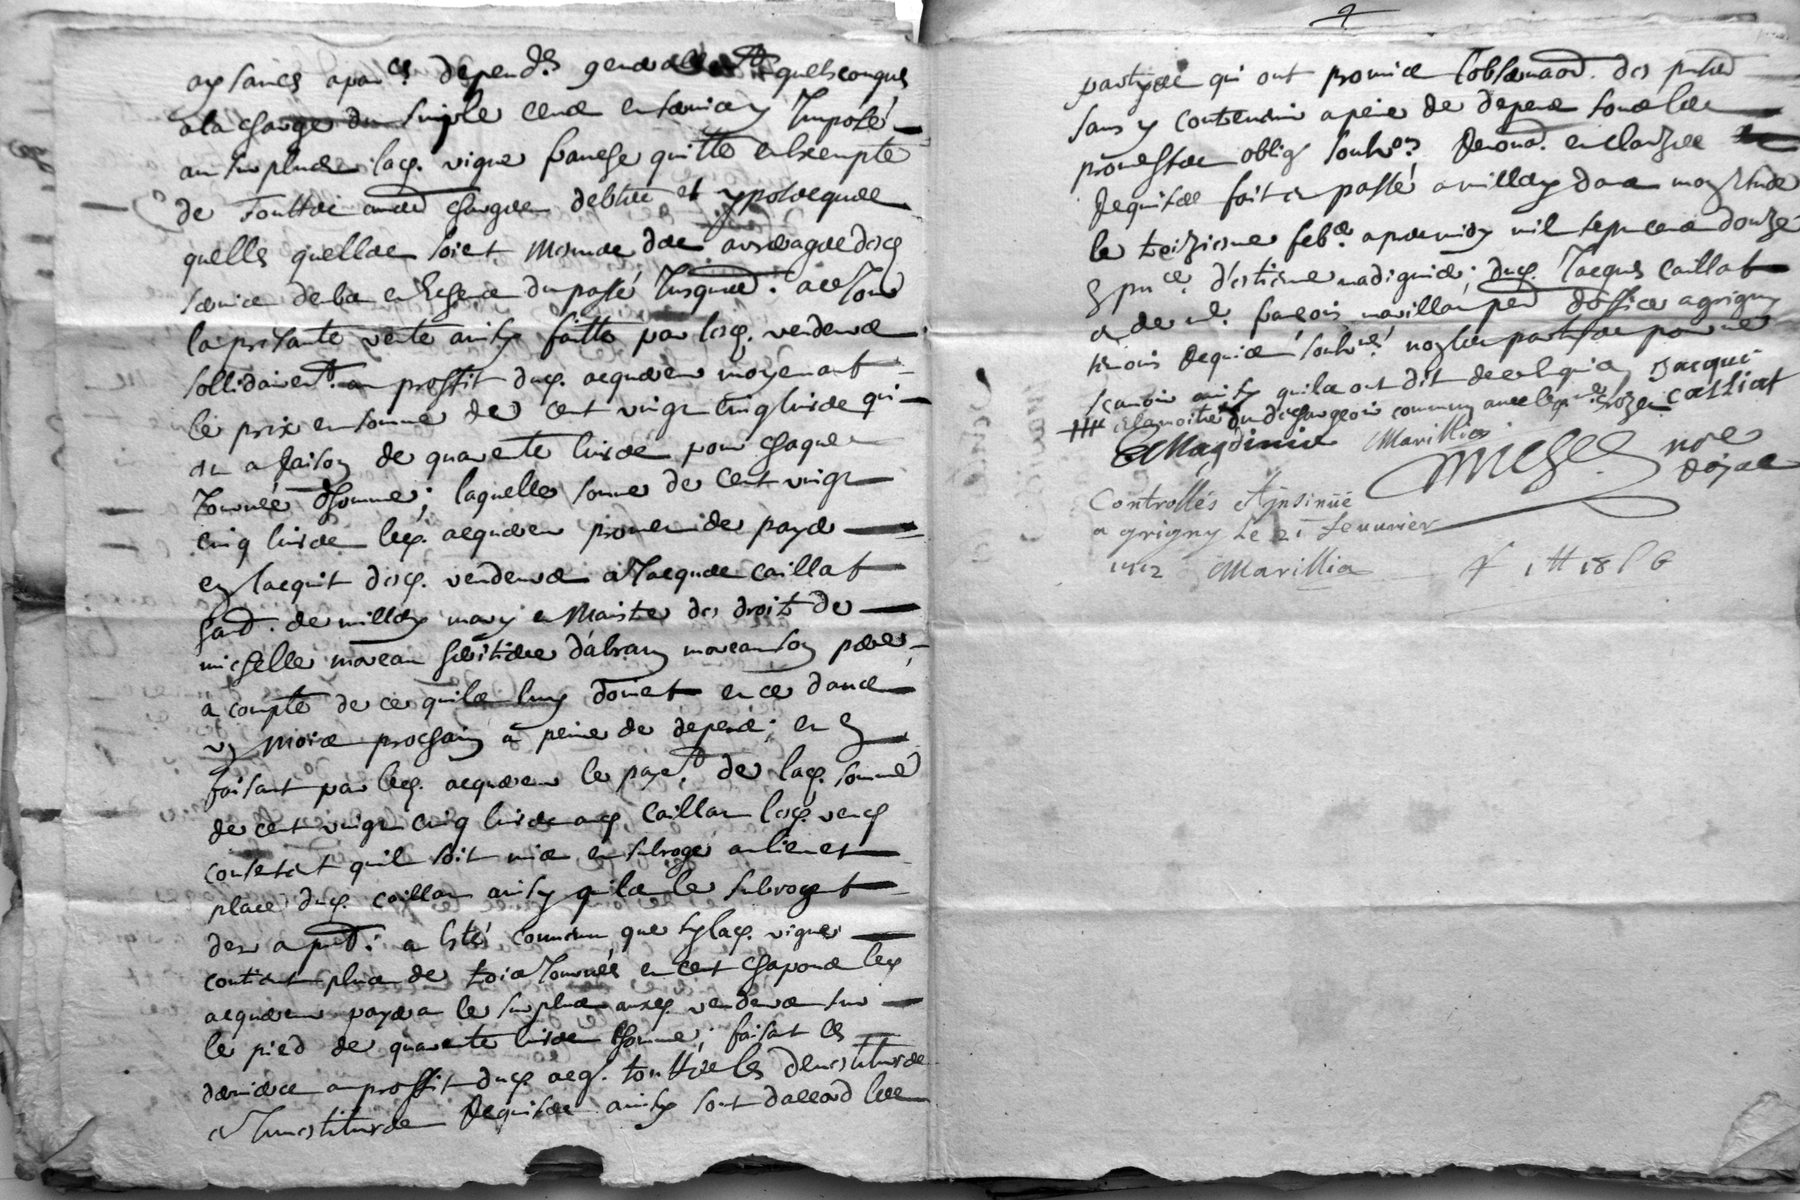 aysances apan.ces depend.s generallem.t quelsconques
a la charge du simple cens et servis y Imposé
au surplus lad. vigne franche quitte et exempte
de touttes autres charges debtes et ypotecques
quelles quelles soient mesme des arrerages desd.
servis de bas en
la presante vente ainsy faitte par lesd. vendeurs
sollidairem.t au proffit dud. acquereur moyenant
le prix et somme de cent vingt cinq livres qui
a raison de quarente livres pour chaque
Journée d'homme; laquelle somme de cent vingt
cinq livres led. acquereur promet de payer
en l'acquit desd. vendeurs a Jacques caillat
hab. de millery mary et Maistre des droits de
michelle moreau heritiere d'abram moreau son pere
a compte de ce quils luy doivent et ce dans
un mois prochain a peine de depens; et en
faisant par led. acquereur le payem.t de lad. somme
de cent vingt cinq livres aud. caillat lesd. vend.
consentent quil soit mis et subrogé au lieu et
place dud. caillat ainsy quils le subrogent
des a p.nt; a esté convenu que sy lad. vigne
contient plus de trois Journées et cent chapons led.
acquereur payera le surplus auxd. vendeurs sur
le pied de quarente livres l'homme; faisant ces
derniers au proffit dud. acq. touttes les devestitures
et Investitures Requises ainsy sont d'accord les
partyes qui ont promis l'observaon. des p.ntes
sans y contrevenir a peine de depens soubs les
promesses oblig. soubm.ons Renonc. et clauses
Requises fait et passé a millery dans mon estude
le treizieme feb.er apres midy mil sept cent douze
En p.nce d'estiene magdinier; dud. Jacques caillat
et de m.e françois marillat d'office a grigny
temoins Requis soub.nés non les partyes pour ne
scavoir ainsy quils ont dit de ce enquis Jacque
et la moitié du dechargeoir commun avec led. m.e rozer cailiat
EMagdinier Marillia
michel no.re
Royal
Controllés et Jnsinüé
a grigny le 21 feuurier
1712 Marillia 1 tt 18 s 6